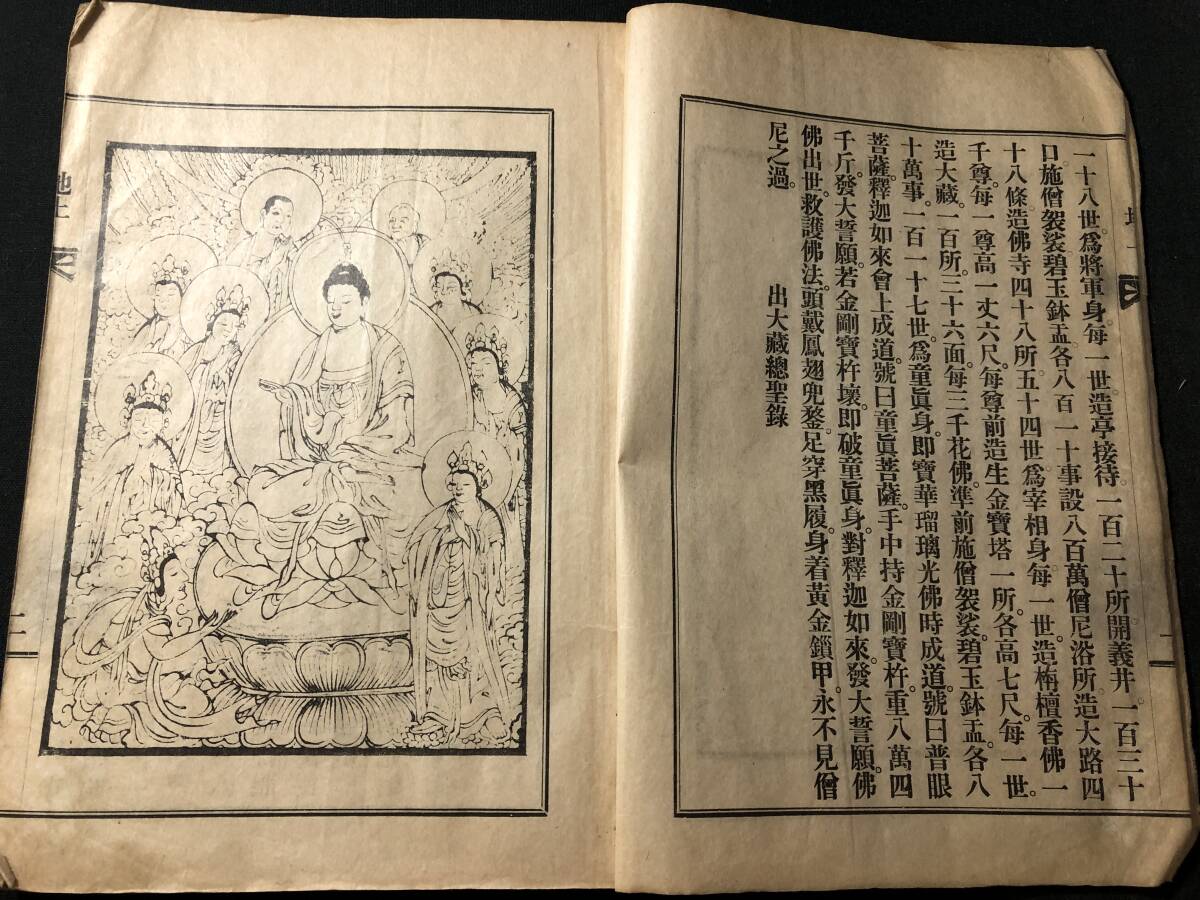 一十八世。爲將軍身。每一世。造亭接待。一百二十所。開義井。一百三十
口。施僧袈裟碧玉鉢盂。各八百一十事設八百萬僧尼浴所。造大路四
十八條造佛寺四十八所。五十四世。爲宰相身。每一世。造栴檀香佛一
千尊。每一尊高一丈六尺。每尊前造生金寶塔一所。各高七尺。每一世。
造大藏。一百所。三十六面。每三千花佛。準前施僧袈裟。碧玉鉢盂。各八
十萬事。一百一十七世。爲童眞身。即寶華瑠璃光佛時成道。號曰普眼
菩薩。釋迦如來會上成道。號曰童眞菩薩。手中持金剛寶杵。重八萬四
千斤。發大誓願。若金剛寶杵壞。即破童眞身。對釋迦如來。發大誓願。佛
佛出世。救護佛法。頭戴鳳翅兜鍪。足穿黑履。身着黃金鎖甲。永不見僧
尼之過。　出大藏總聖錄
二
地上
二